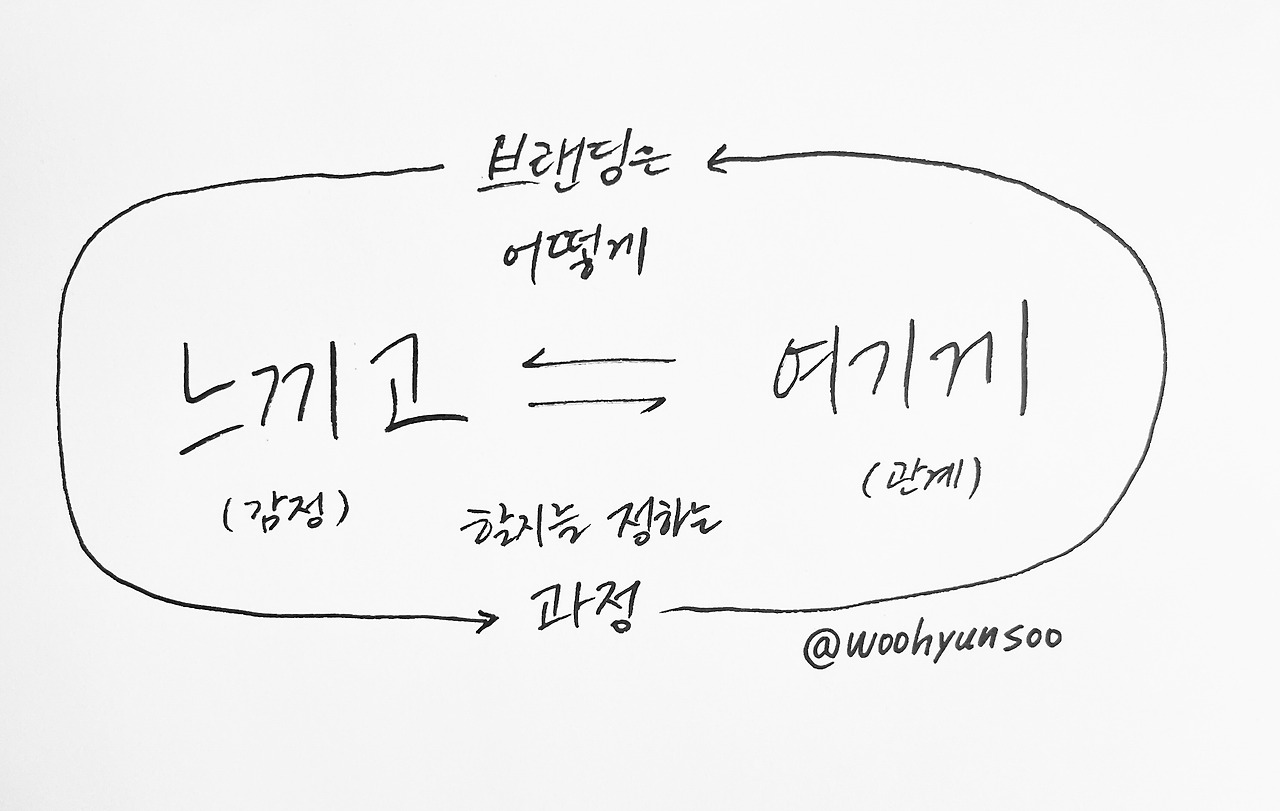 브랜딩은
어떻게
느끼고 여기게
(감정) (관계)
할지를 정하는
과정
@woohyunsoo